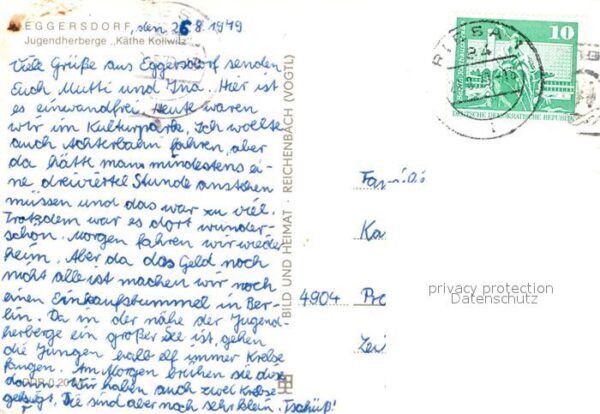 EGGERSDORF, den 26.8.1979
Jugendherberge „Käthe Kollwitz"
Viele Grüße aus Eggersdorf senden
Euch Mutti und Ina. Hier ist
es einwandfrei. Heute waren
wir im Kulturpark. Ich wollte
auch Achterbahn fahren, aber
da hätte man mindestens ei-
ne dreiviertel Stunde anstehen
müssen und das war zu viel.
Trotzdem war es dort wunder-
schön. Morgen fahren wir wieder
heim. Aber da das Geld noch
nicht alle ist machen wir noch
einen Einkaufsbummel in Ber-
lin. Da in der nähe der Jugend-
herberge ein großer See ist, gehen
die Jungen halb elf immer Krebse
fangen. Am Morgen brühen sie diese
dann. Wir haben auch zwei Krebse
gekriegt. Sie sind aber noch sehr klein. Tschüß!
BILD UND HEIMAT · REICHENBACH (VOGTL)
10
DEUTSCHE DEMOKRATISCHE REPUBLIK
RIESA 1
84
Ka
4904
privacy protection
Datenschutz